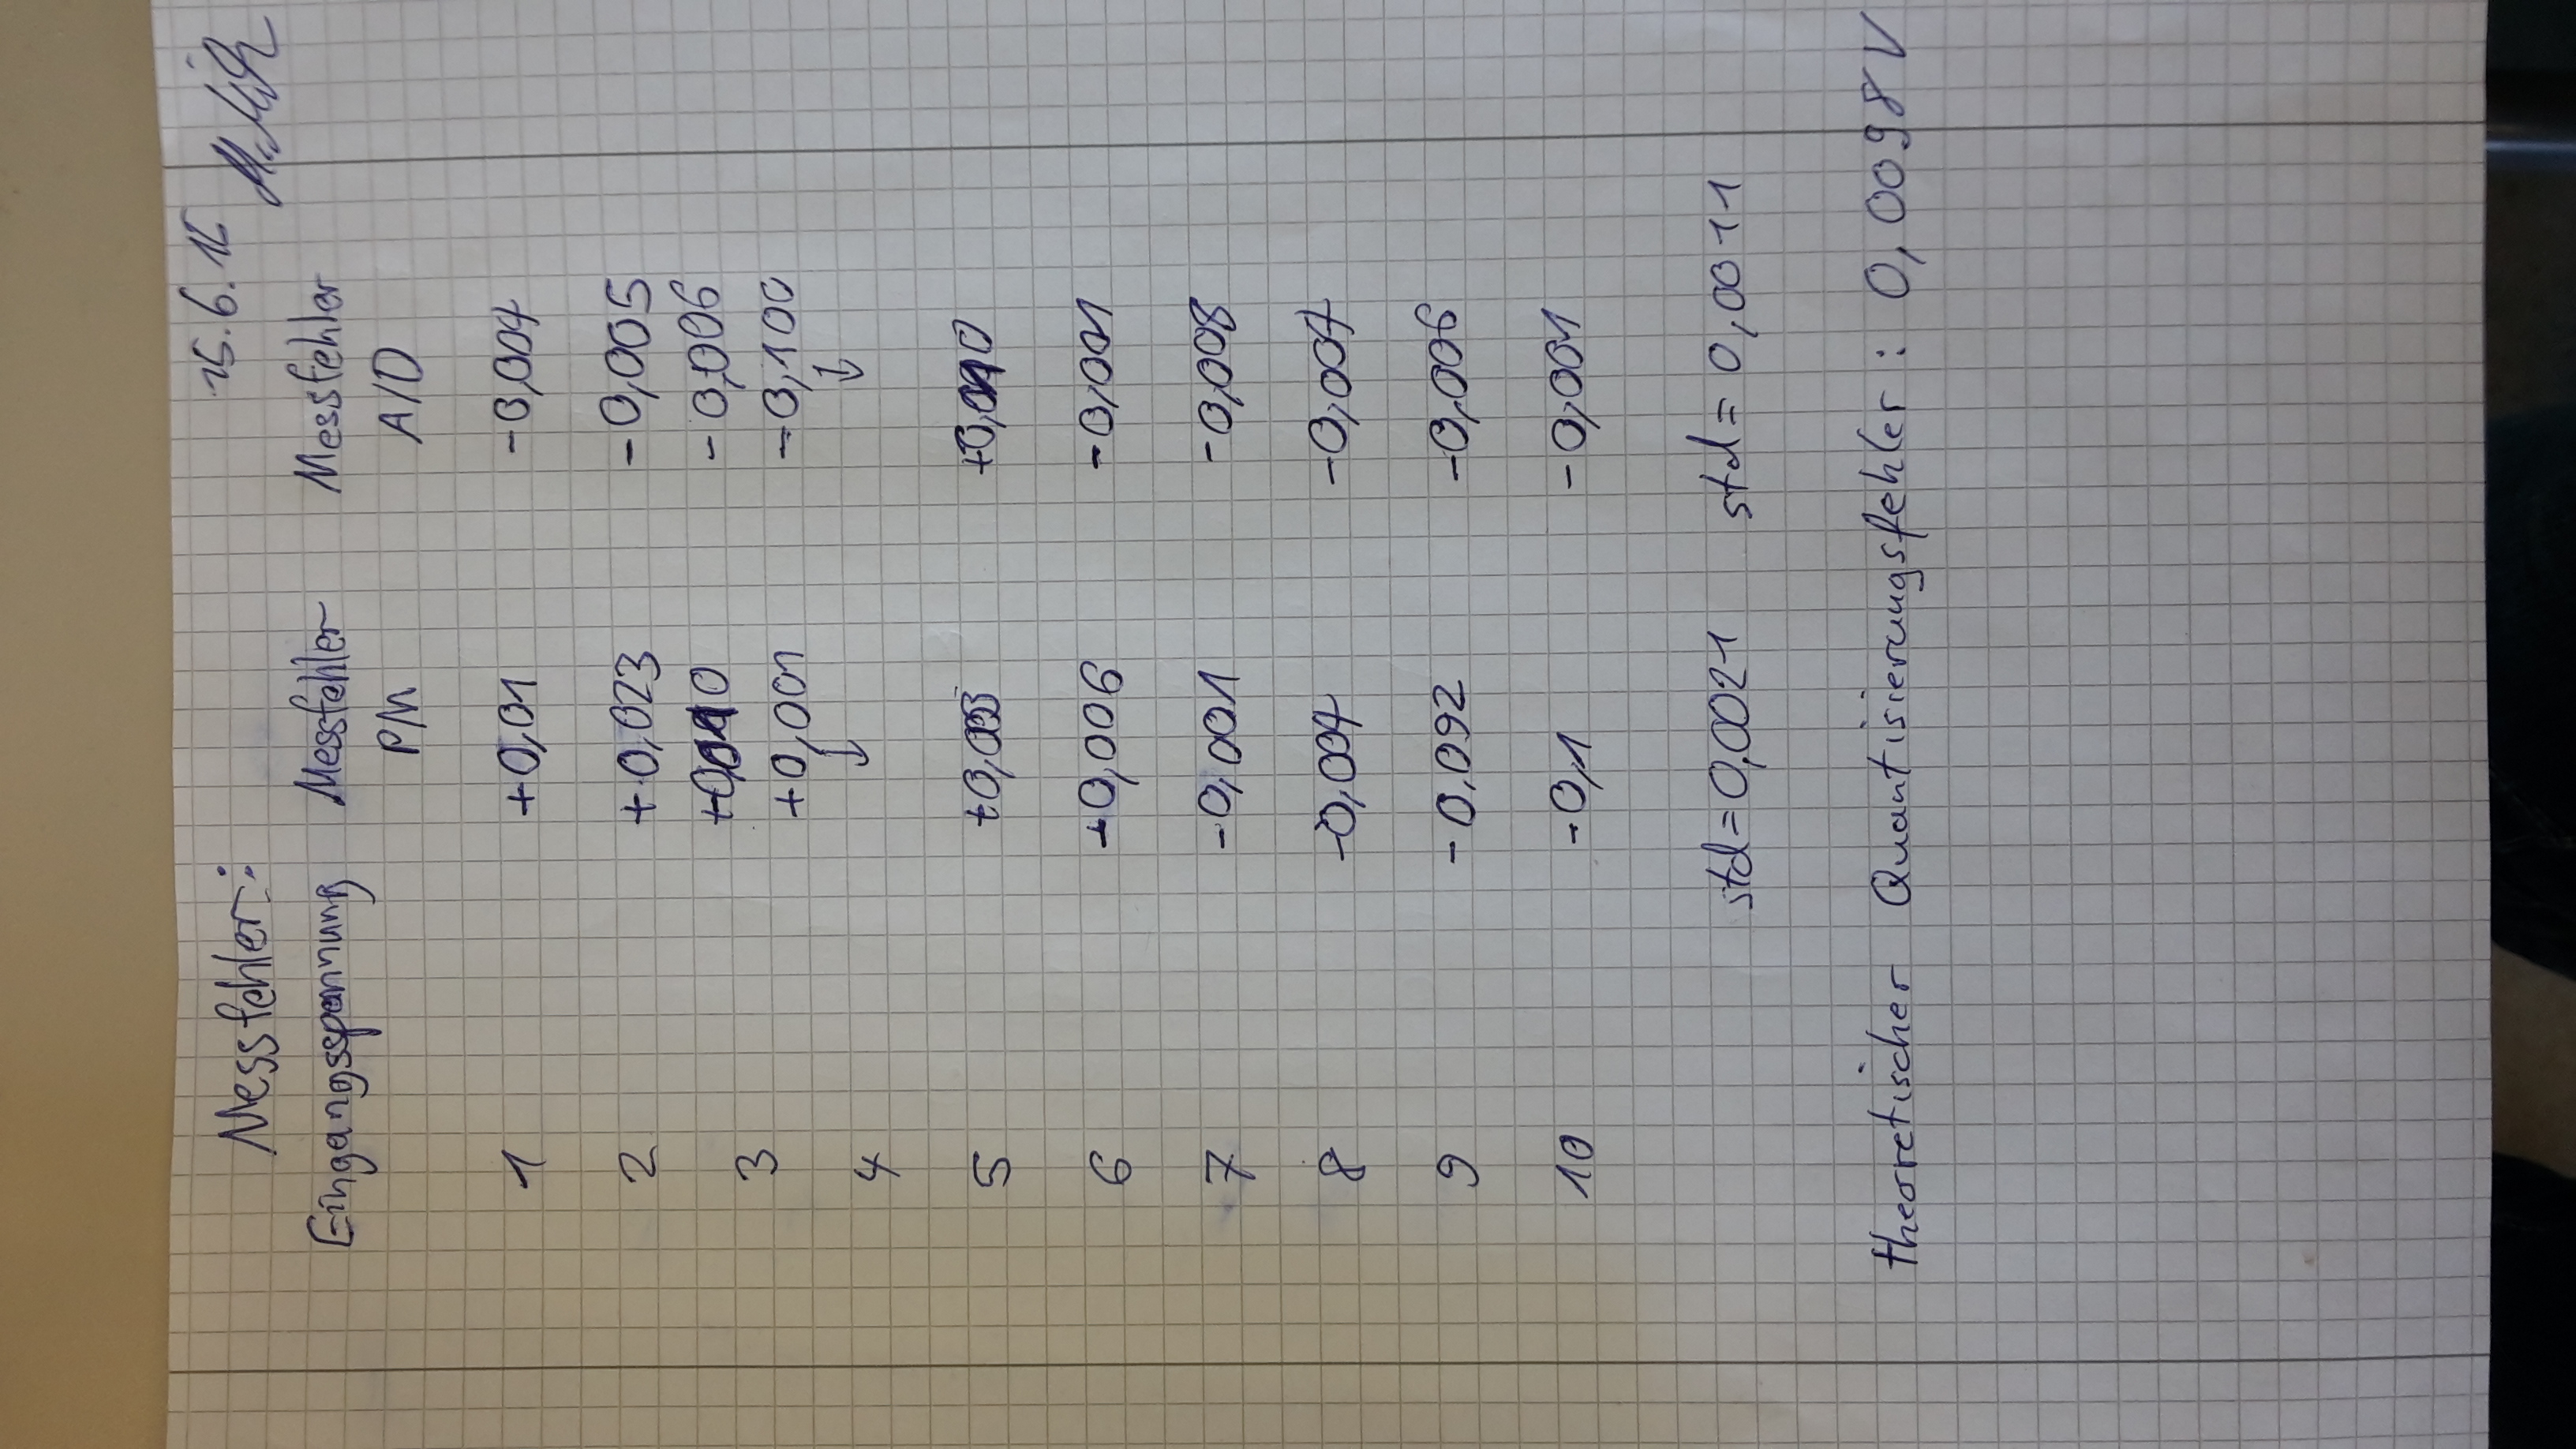 Messfehler: 25.6.15
Eingangsspannung Messfehler Messfehler
PM A/D
1 +0,01 -0,004
2 +0,023 -0,005
+0,010 -0,006
3
+0,001 -0,100
↓ ↓
4
5 +0,003 +0,010
6 +0,006 -0,001
7 -0,001 -0,008
8 -0,004 -0,007
9 -0,092 -0,006
10 -0,1 -0,001
std=0,0021 std=0,0011
theoretischer Quantisierungsfehler: 0,0098V